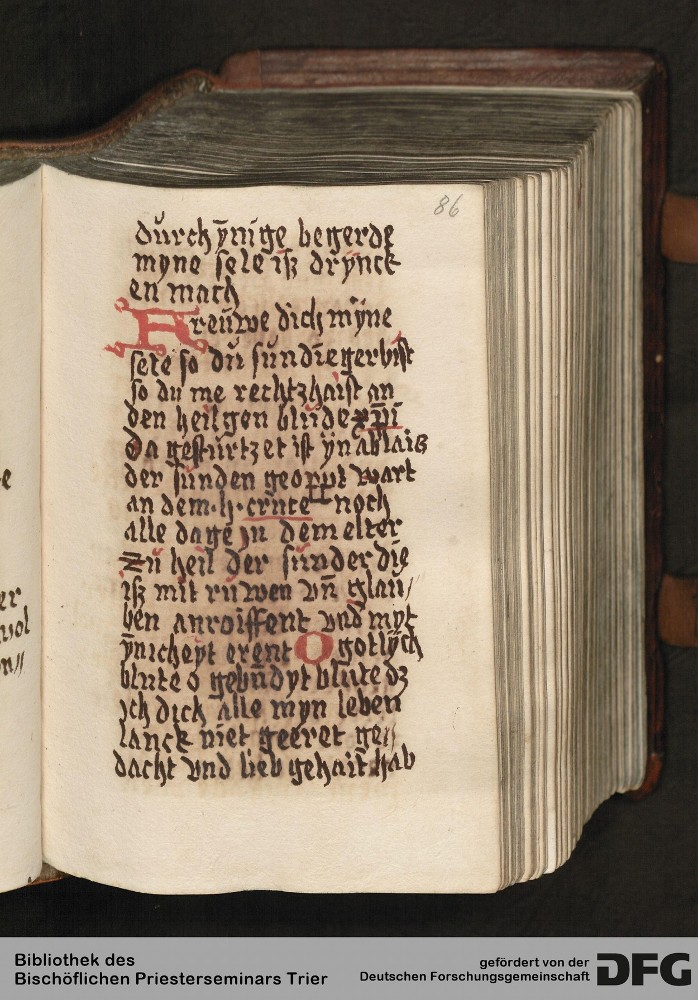 86
durch ẏnige begerde
myne sele iß drẏnck
en mach
Freuwe dich mẏne
sele so du sundiegerbist
so du me rechtzhaist an
den heilgen blude xp̄i
da gesturtzet ist ẏn ablais
der sunden wart
an dem .h. cruce noch
alle dage jn dem elter
zu heil der sunder die
iß mit ruwen vn̄ glau//
ben anroiffent vnd myt
ẏnicheyt erent O gotlẏch
blute o gebudyt blute dz
jch dich alle myn leben
lanck niet geeret ge//
dacht vnd lieb gehaist hab
e
er
vol
n//
Bibliothek des
Bischöflichen Priesterseminars Trier
gefördert von der
Deutschen Forschungsgemeinschaft
DFG